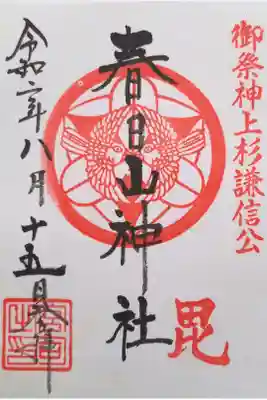 御祭神上杉謙信公
毘
春日山神社
令和二年八月十五日奉拝